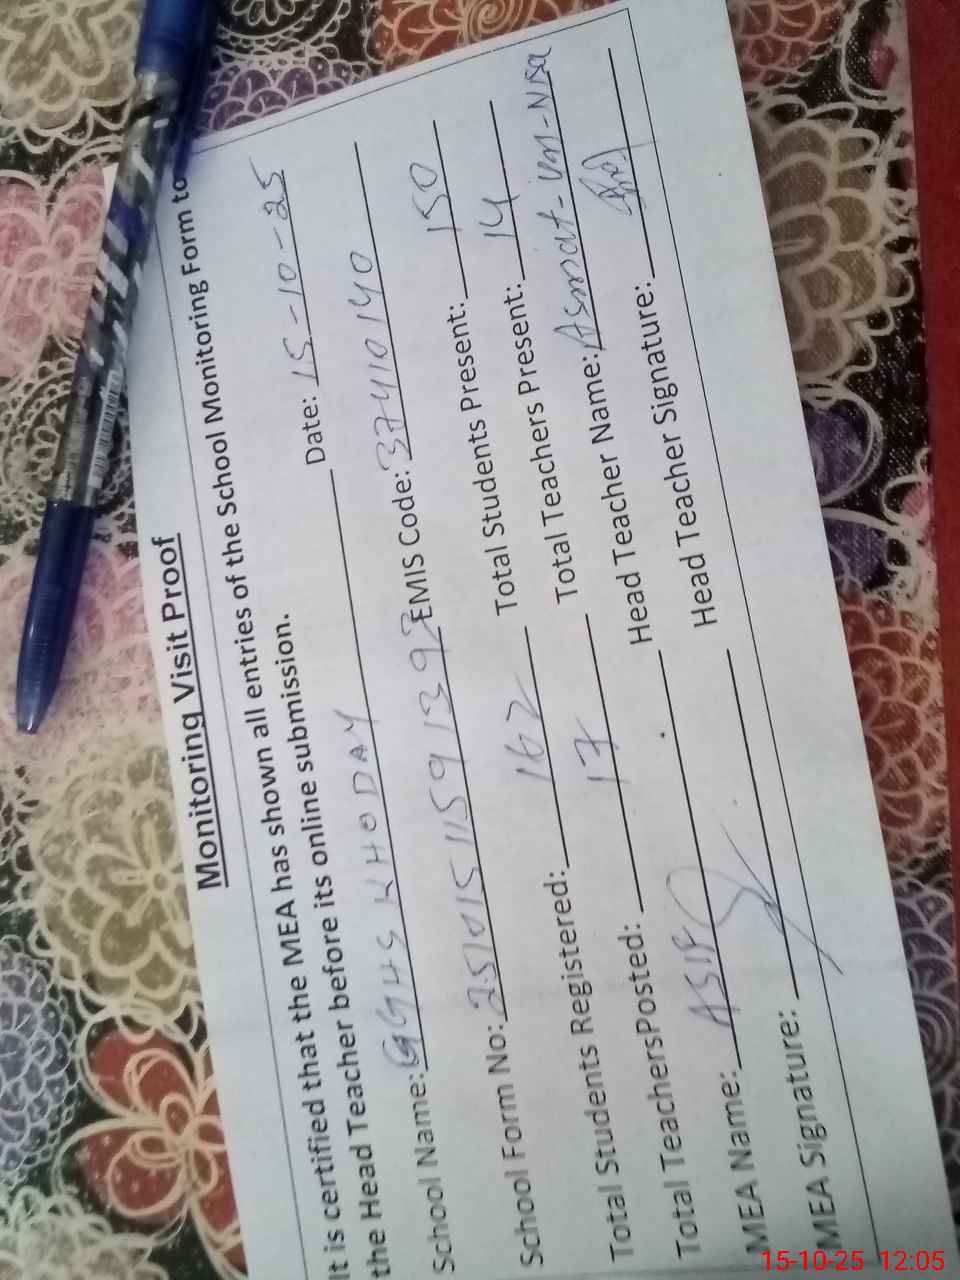 Monitoring Visit Proof
It is certified that the MEA has shown all entries of the School Monitoring Form to
the Head Teacher before its online submission.
School Name: GGHS KHODAY Date: 15-10-25
School Form No: 251015115913993 EMIS Code: 37410140
Total Students Registered: 162 Total Students Present: 150
Total TeachersPosted: 17 Total Teachers Present: 14
MEA Name: ASIF Head Teacher Name: Asmat-un-Nisa
MEA Signature: Head Teacher Signature:
15-10-25 12:05